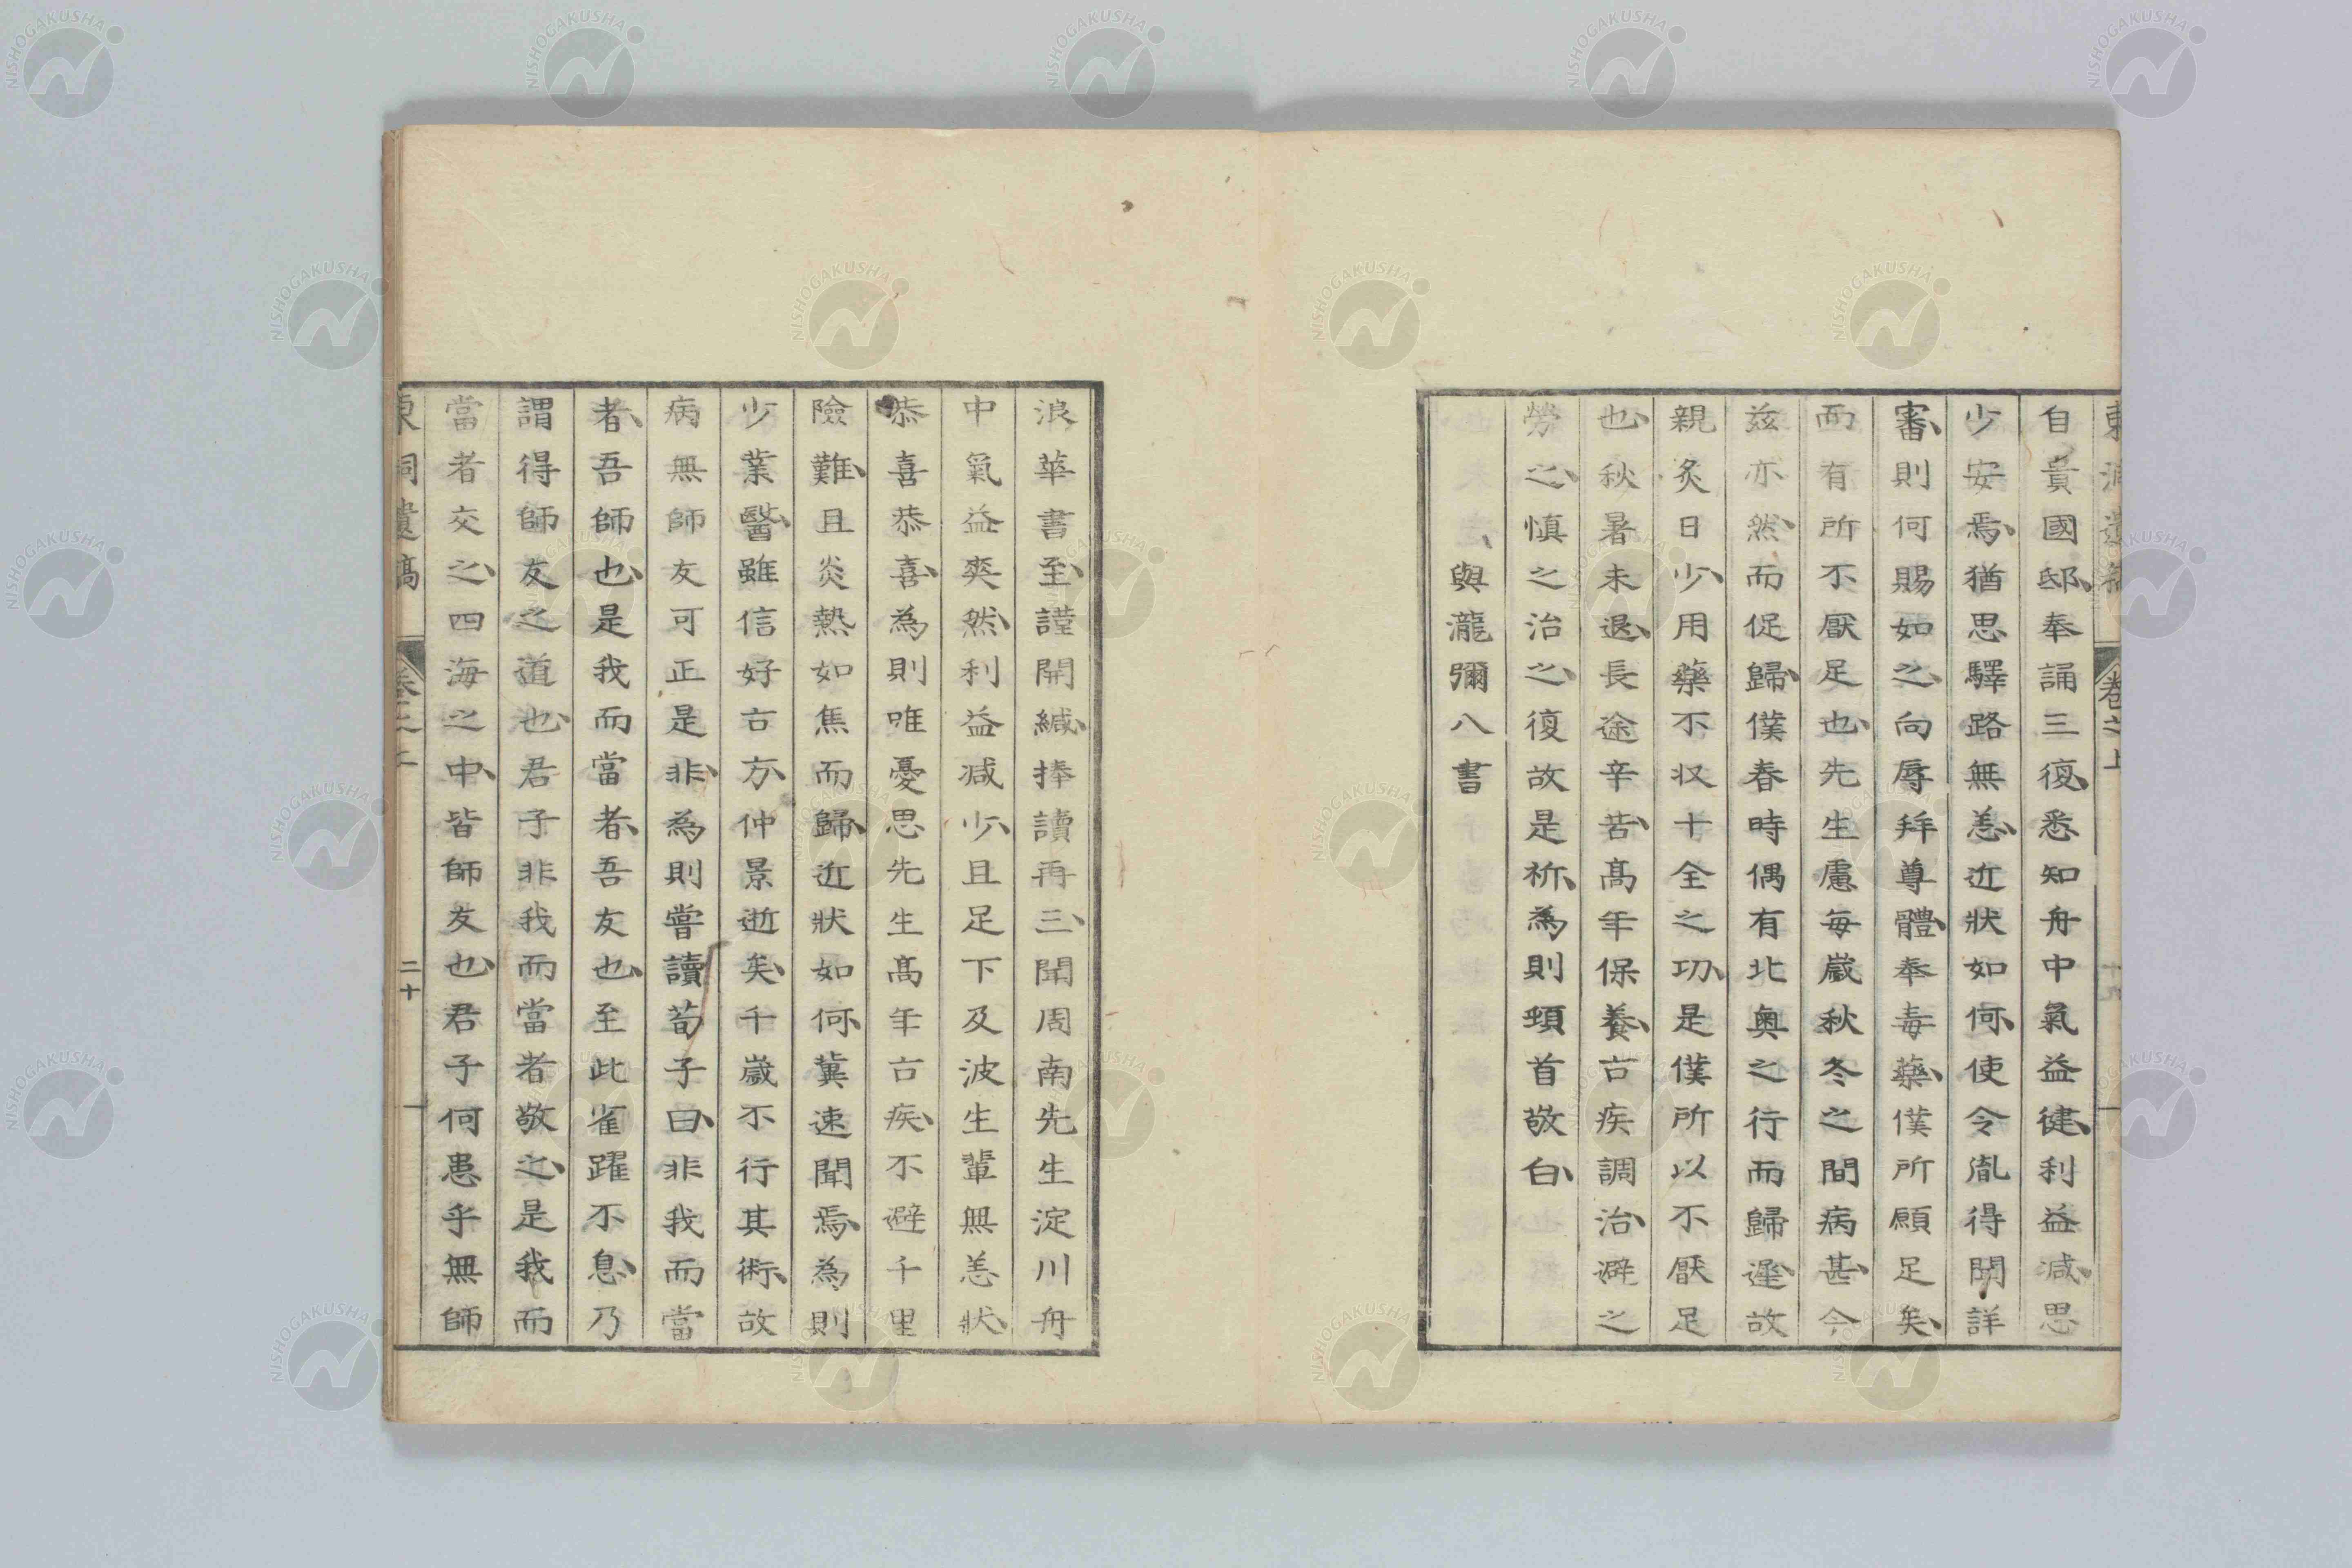 自貴國邸、奉誦三復、悉知舟中氣益健、利益減、思
少安焉、猶思驛路無恙、近狀如何、使令胤得聞詳
審、則何賜如之、向辱拜尊體、奉毒藥、僕所願足矣、
而有所不厭足也、先生慮每歲秋冬之間病甚、今
茲亦然、而促歸、僕春時偶有北奧之行而歸遲、故
親炙日少、用藥不收十全之功、是僕所以不厭足
也、秋暑未退、長途辛苦、高年保養、古疾調治、避之
勞之、慎之治之、復故是祈、為則頓首敬白、
與瀧彌八書
卷之上
浪華書至、謹開緘、捧讀再三、聞周南先生淀川舟
中氣益爽然、利益減少、且足下及波生輩無恙狀、
恭喜恭喜、為則唯憂思先生高年古疾、不避千里
險難、且炎熱如焦而歸、近狀如何、冀速聞焉、為則
少業醫、雖信好古方、仲景逝矣、千歲不行其術、故
病無師友可正是非、為則嘗讀荀子曰、非我而當
者、吾師也、是我而當者、吾友也、至此雀躍不息、乃
謂得師友之道也、君子非我而當者敬之、是我而
當者交之、四海之中、皆師友也、君子何患乎無師
東洞遺稿 卷之上 二十